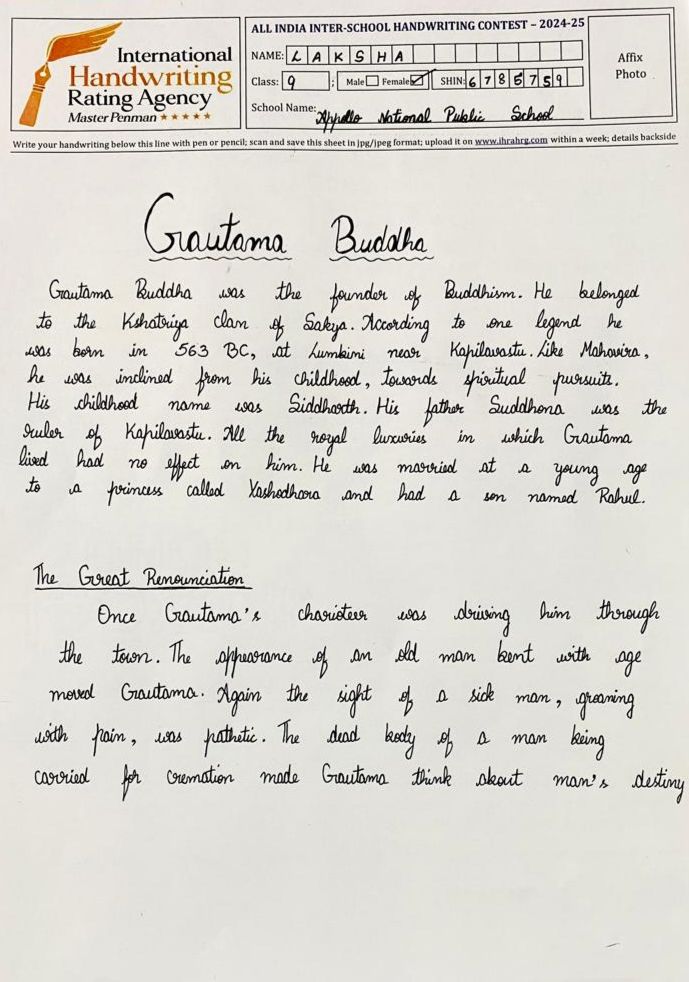 International
Handwriting
Rating Agency
Master Penman ★★★★★
ALL INDIA INTER-SCHOOL HANDWRITING CONTEST – 2024-25
NAME: LAKSHA
Class: 9 ; Male☐ Female☑ SHIN: 6785759
School Name: Appollo National Public School
Affix
Photo
Write your handwriting below this line with pen or pencil; scan and save this sheet in jpg/jpeg format; upload it on www.ihrahrg.com within a week; details backside
Gautama Buddha
Gautama Buddha was the founder of Buddhism. He belonged
to the Kshatriya clan of Sakya. According to one legend he
was born in 563 BC, at Lumbini near Kapilavastu. Like Mahavira,
he was inclined from his childhood, towards spiritual pursuits.
His childhood name was Siddharth. His father Suddhona was the
ruler of Kapilavastu. All the royal luxuries in which Gautama
lived had no effect on him. He was married at a young age
to a princess called Yashodhara and had a son named Rahul.
The Great Renounciation
Once Gautama's charioteer was driving him through
the town. The appearance of an old man bent with age
moved Gautama. Again the sight of a sick man, groaning
with pain, was pathetic. The dead body of a man being
carried for cremation made Gautama think about man's destiny